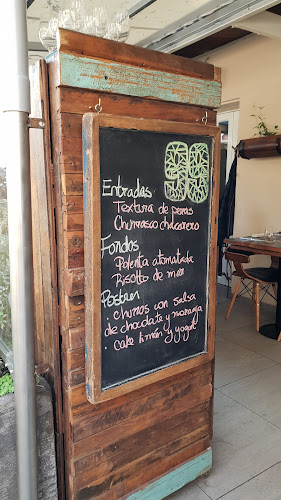 Entradas
Textura de peras
Churrasco chacarero
Fondos
Polenta atomatada
Risotto de
Postres
. churros con salsa
de chocate y naranja
. cake limón y yogurt